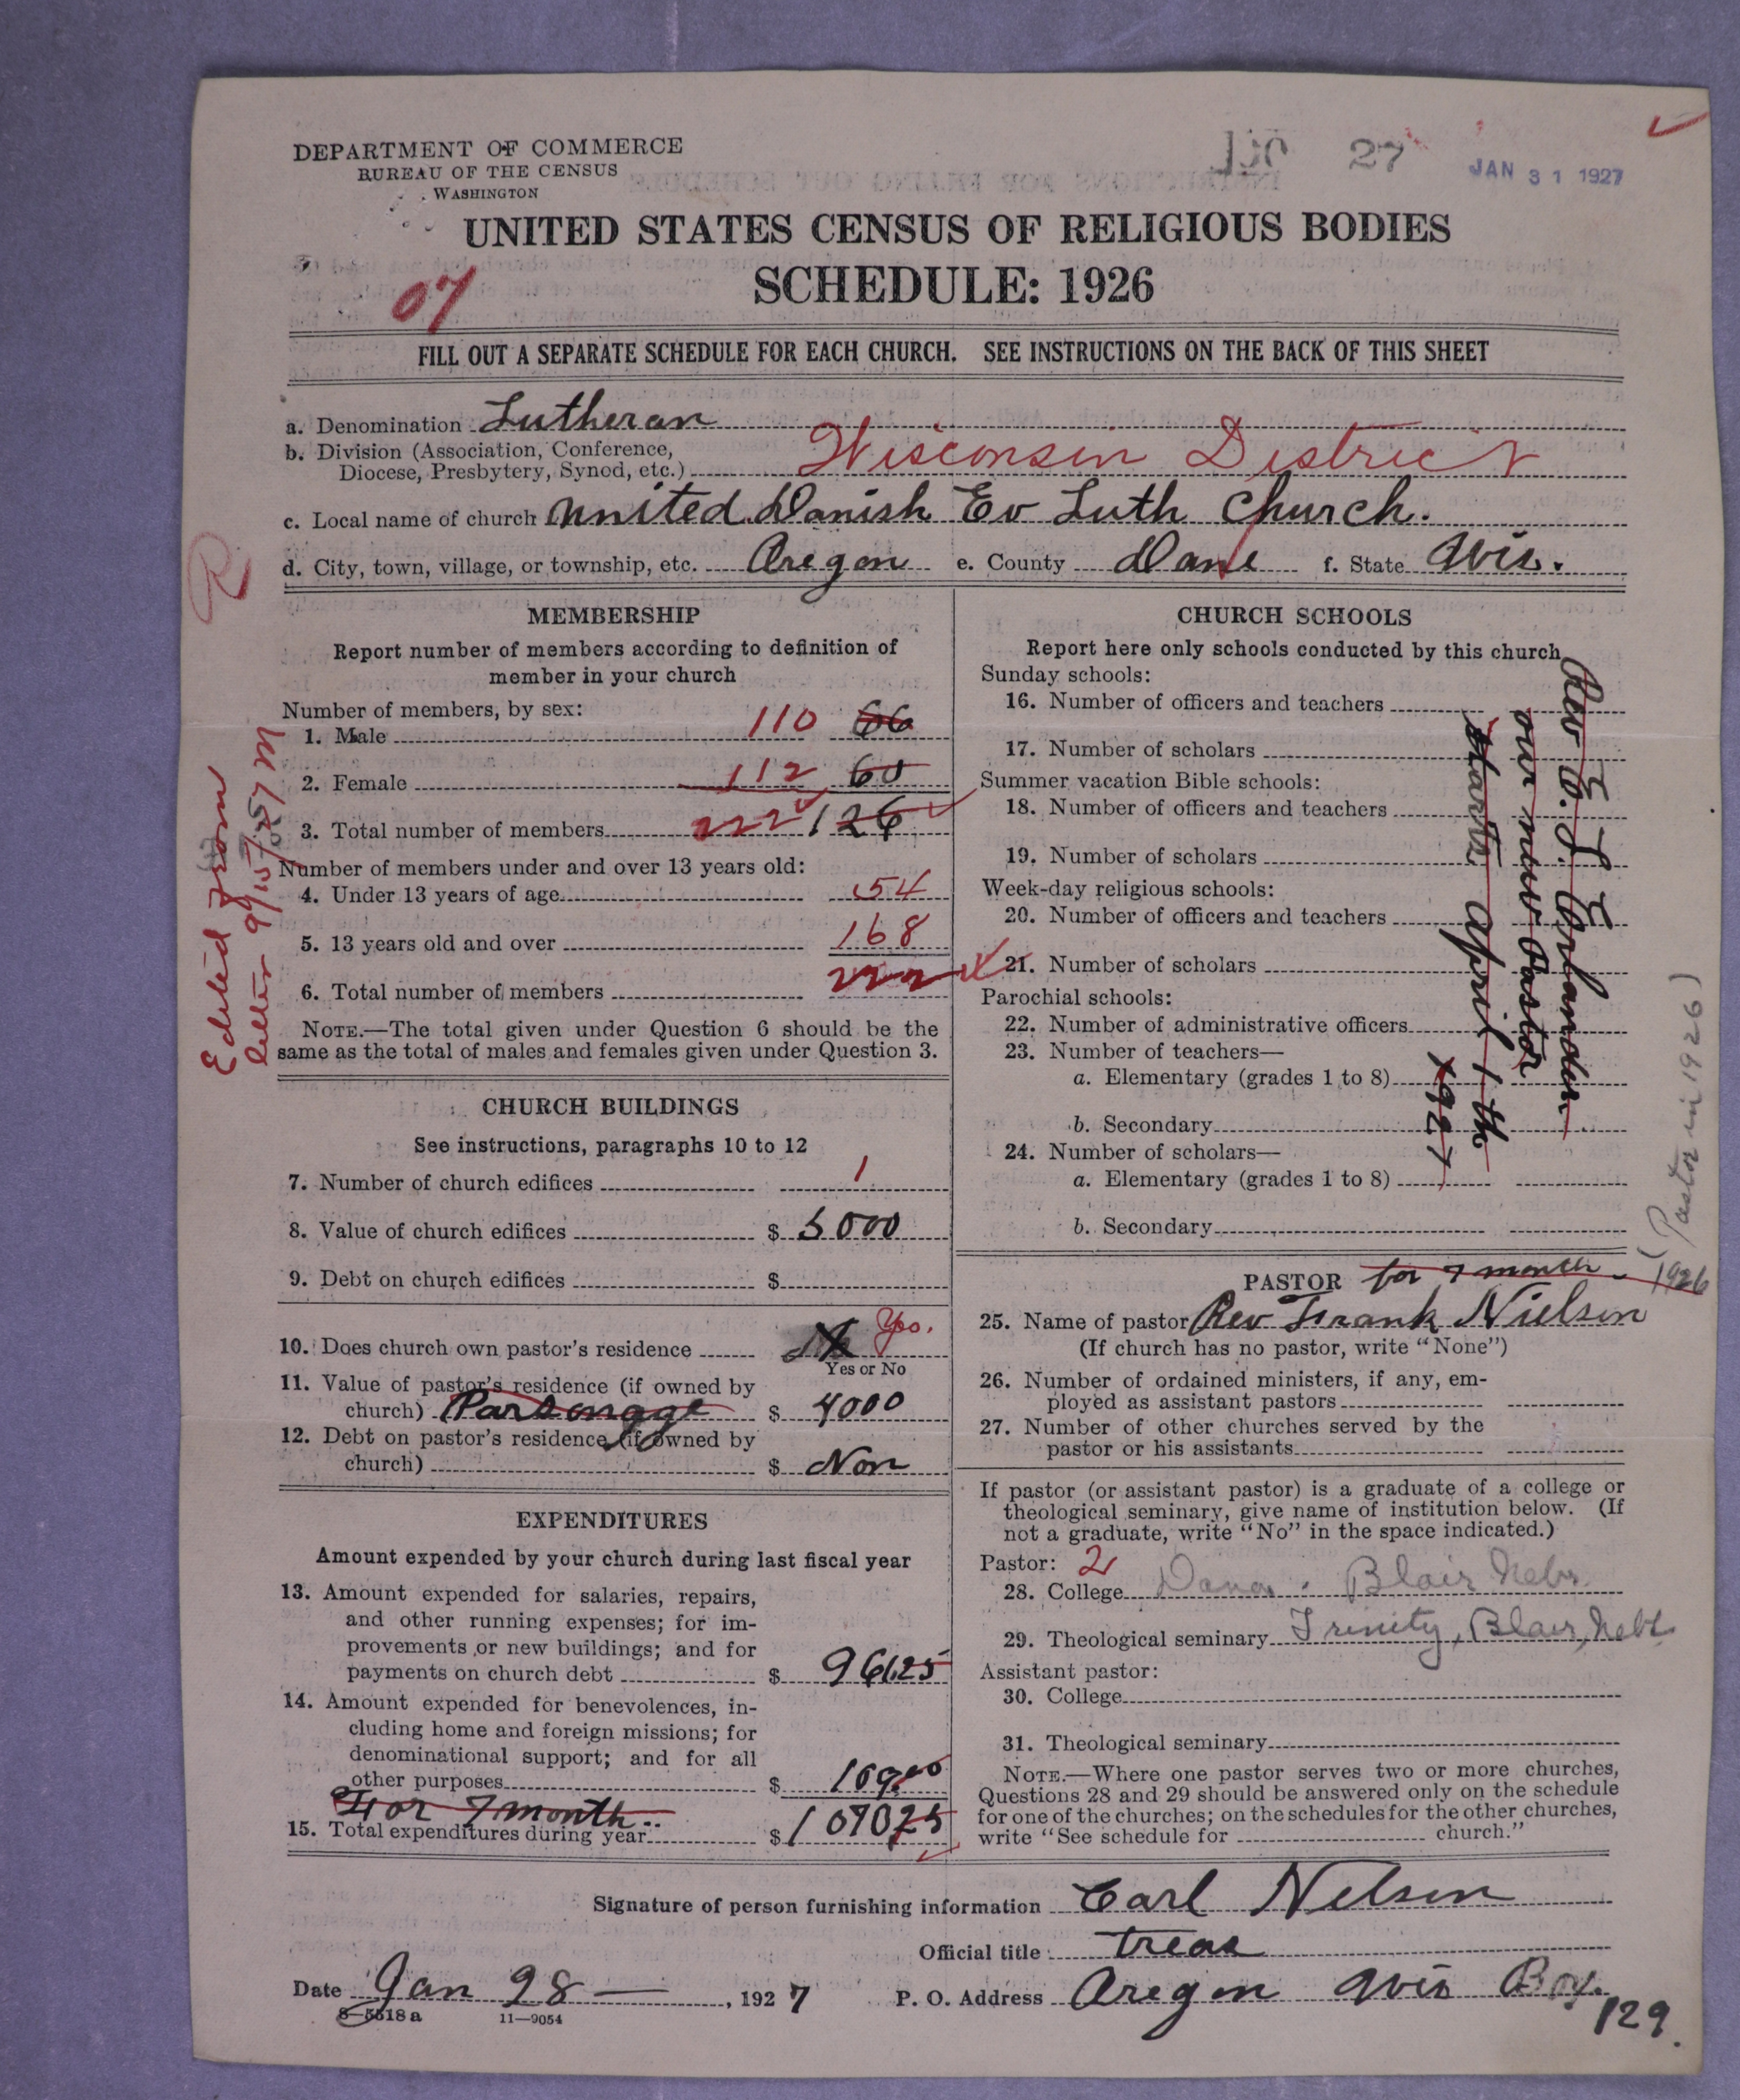 DEPARTMENT OF COMMERCE
BUREAU OF THE CENSUS
WASHINGTON
27
JAN 31 1927
UNITED STATES CENSUS OF RELIGIOUS BODIES
SCHEDULE: 1926
07
FILL OUT A SEPARATE SCHEDULE FOR EACH CHURCH. SEE INSTRUCTIONS ON THE BACK OF THIS SHEET
a. Denomination Lutheran
b. Division (Association, Conference,
Diocese, Presbytery, Synod, etc.) Wisconsin District
c. Local name of church United Danish Ev Luth Church.
d. City, town, village, or township, etc. Oregon e. County Dane f. State Wis.
R
Edited from
letter 9/15/27 M
MEMBERSHIP
Report number of members according to definition of
member in your church
Number of members, by sex:
1. Male 110 66
2. Female 112 60
3. Total number of members 222 126
Number of members under and over 13 years old:
4. Under 13 years of age 54
5. 13 years old and over 168
6. Total number of members 222
NOTE.—The total given under Question 6 should be the
same as the total of males and females given under Question 3.
CHURCH BUILDINGS
See instructions, paragraphs 10 to 12
7. Number of church edifices 1
8. Value of church edifices $ 5000
9. Debt on church edifices $
10. Does church own pastor's residence Yes.
Yes or No
11. Value of pastor's residence (if owned by
church) Parsonage $ 4000
12. Debt on pastor's residence (if owned by
church) $ Non
EXPENDITURES
Amount expended by your church during last fiscal year
13. Amount expended for salaries, repairs,
and other running expenses; for im-
provements or new buildings; and for
payments on church debt $ 961.25
14. Amount expended for benevolences, in-
cluding home and foreign missions; for
denominational support; and for all
other purposes $ 109.00
For 7 month
15. Total expenditures during year $ 1070 25
CHURCH SCHOOLS
Report here only schools conducted by this church
Sunday schools:
16. Number of officers and teachers
17. Number of scholars
Summer vacation Bible schools:
18. Number of officers and teachers
19. Number of scholars
Week-day religious schools:
20. Number of officers and teachers
21. Number of scholars
Parochial schools:
22. Number of administrative officers
23. Number of teachers—
a. Elementary (grades 1 to 8)
b. Secondary
24. Number of scholars—
a. Elementary (grades 1 to 8)
b. Secondary
Rev
our new Pastor
starte April 1 th
1927
(Pastor in 1926)
PASTOR for 7 month 1926
25. Name of pastor Rev Frank Nielson
(If church has no pastor, write "None")
26. Number of ordained ministers, if any, em-
ployed as assistant pastors
27. Number of other churches served by the
pastor or his assistants
If pastor (or assistant pastor) is a graduate of a college or
theological seminary, give name of institution below. (If
not a graduate, write "No" in the space indicated.)
Pastor: 2
28. College Dana. Blair Nebr.
29. Theological seminary Trinity, Blair, Nebr
Assistant pastor:
30. College
31. Theological seminary
NOTE.—Where one pastor serves two or more churches,
Questions 28 and 29 should be answered only on the schedule
for one of the churches; on the schedules for the other churches,
write "See schedule for church."
Signature of person furnishing information Carl Nelson
Official title treas
Date Jan 28 — , 1927 P. O. Address Oregon Wis Box.
129.
8—5518a 11—9054